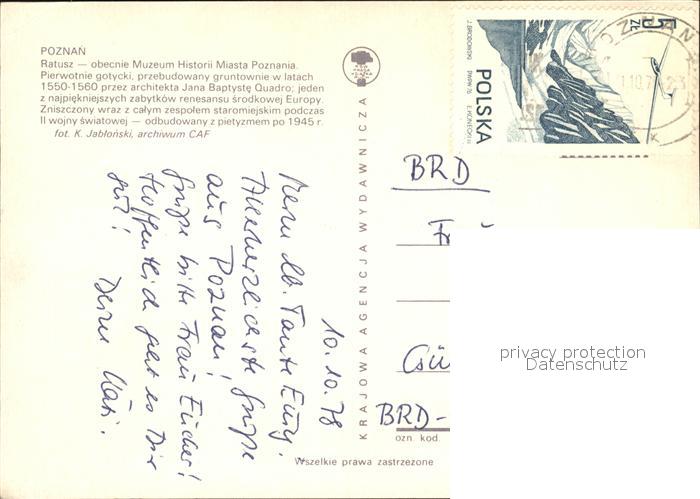 POZNAŃ
Ratusz — obecnie Muzeum Historii Miasta Poznania.
Pierwotnie gotycki, przebudowany gruntownie w latach
1550-1560 przez architekta Jana Baptystę Quadro; jeden
z najpiękniejszych zabytków renesansu środkowej Europy.
Zniszczony wraz z całym zespołem staromiejskim podczas
II wojny światowej — odbudowany z pietyzmem po 1945 r.
fot. K. Jabłoński, archiwum CAF
KRAJOWA AGENCJA WYDAWNICZA
10.10.78
Meine lb. Tante
Allerherzlichste Grüße
aus Poznan!
Grüße bitte Frau
Hoffentlich geht es Dir
gut!
Deine Kati.
5 ZŁ
POLSKA
J. BRODOWSKI
PWPW 76
POZNAŃ
BRD
Fr
Gü
BRD-
ozn. kod.
Wszelkie prawa zastrzeżone
privacy protection
Datenschutz